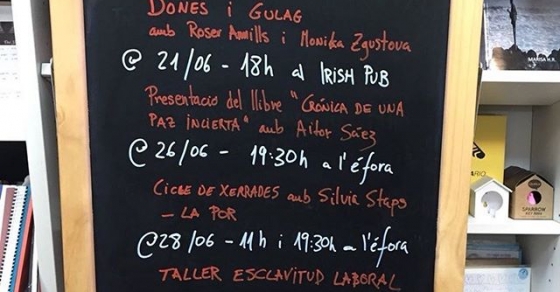 DONES i GULAG
amb Roser Amills i Monika Zgustova
@ 21/06 - 18h al IRISH PUB
Presentació del llibre "CRÓNICA DE UNA
PAZ INCIERTA" amb Aitor Sáez
@ 26/06 - 19:30h a l'éfora
CICLE DE XERRADES amb Silvia Staps
- LA POR
@ 28/06 - 11h i 19:30h a l'éfora
TALLER ESCLAVITUD LABORAL
MARISA M.R.
SPARROW